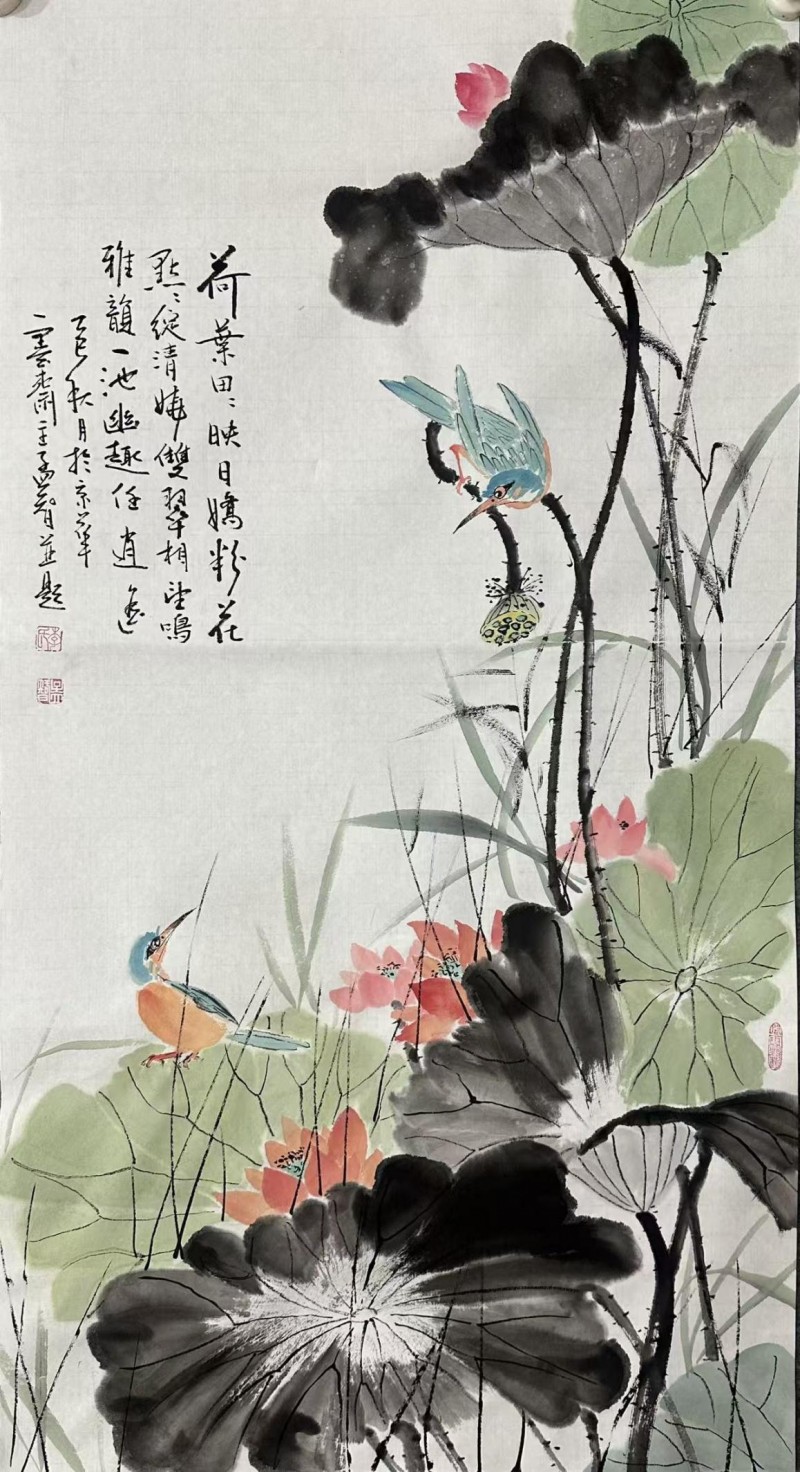 荷葉田〻映日嬌粉花
點〻綻清嬈雙翠相望鳴
雅韻一池幽趣任逍遙
乙巳秋月於京華
雲齋主智並題